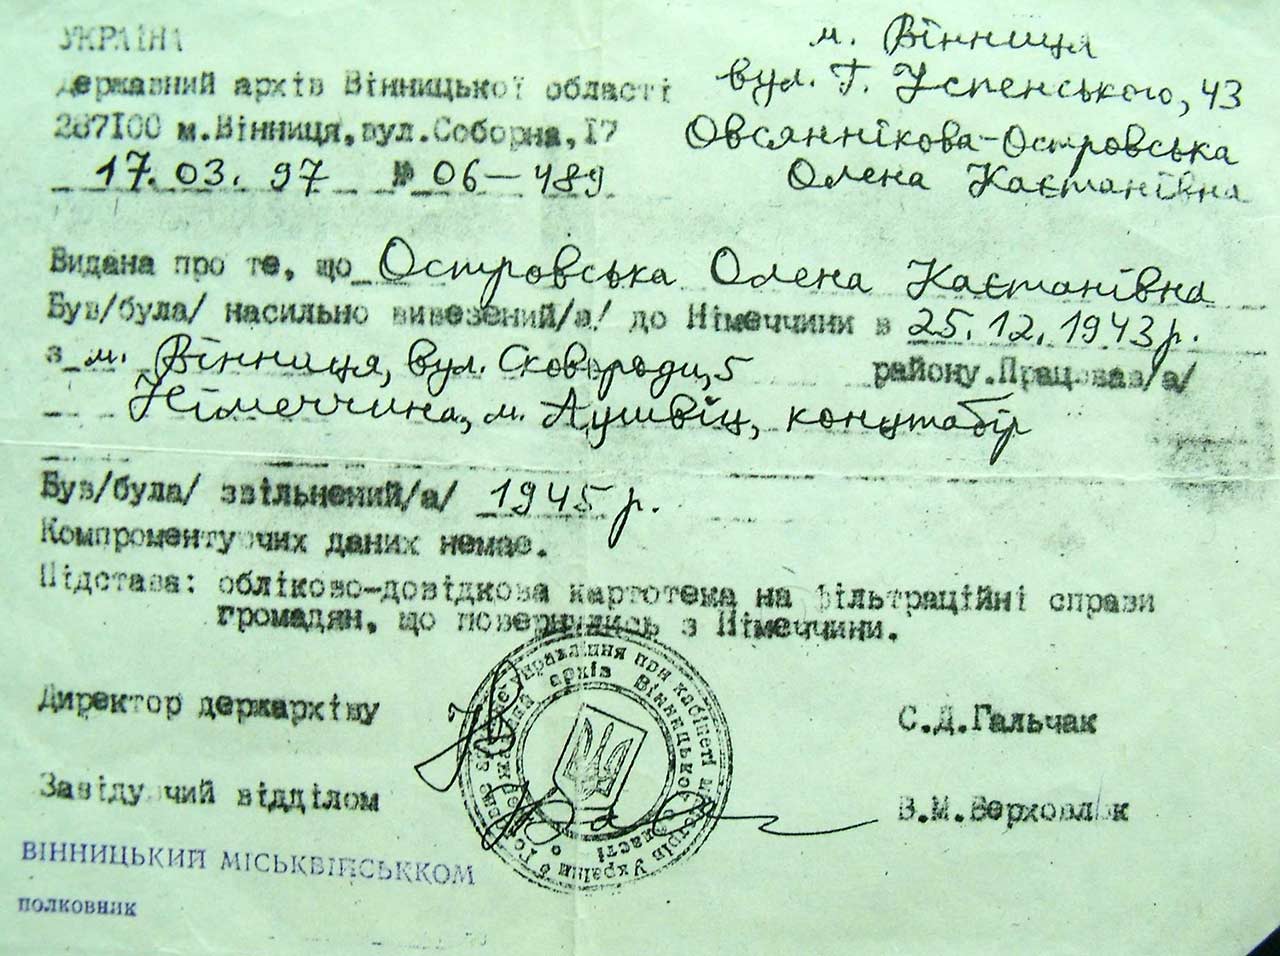 УКРАЇНА
Державний архів Вінницької області
287100 м.Вінниця,вул.Соборна,17
17.03.97 № 06-489
м. Вінниця
вул. Г. Успенського, 43
Овсяннікова-Островська
Олена Каєтанівна
Видана про те, що Островська Олена Каєтанівна
Був/була/ насильно вивезений/а/ до Німеччини в 25.12.1943р.
з м. Вінниця, вул. Сковороди, 5 району.Працював/а/
Німеччина, м. Аушвіц, концтабір
Був/була/ звільнений/а/ 1945 р.
Компроментуючих даних немає.
Підстава: обліково-довідкова картотека на фільтраційні справи
громадян, що повернулись з Німеччини.
Директор держархіву С.Д.Гальчак
Завідуючий відділом
архів Вінницької області
управління при кабінеті міністрів України
ВІННИЦЬКИЙ МІСЬКВІЙСЬККОМ
полковник